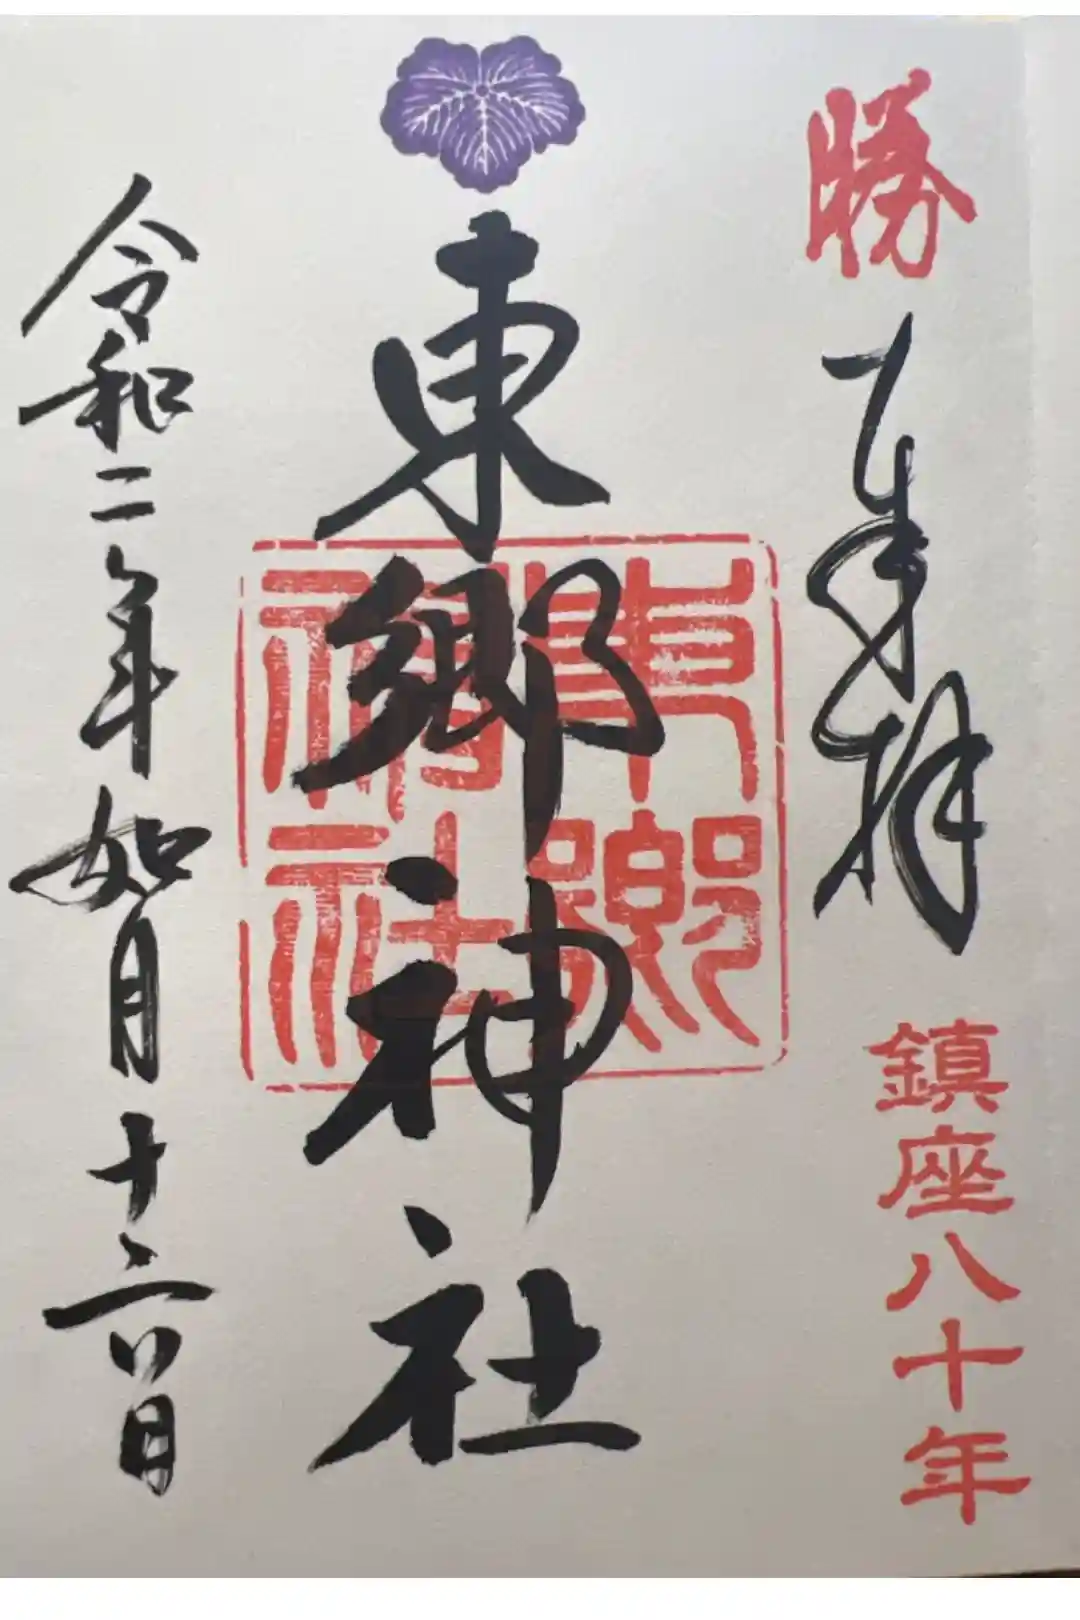 勝
奉拝
鎮座八十年
東郷神社
東郷神社
令和二年如月十六日